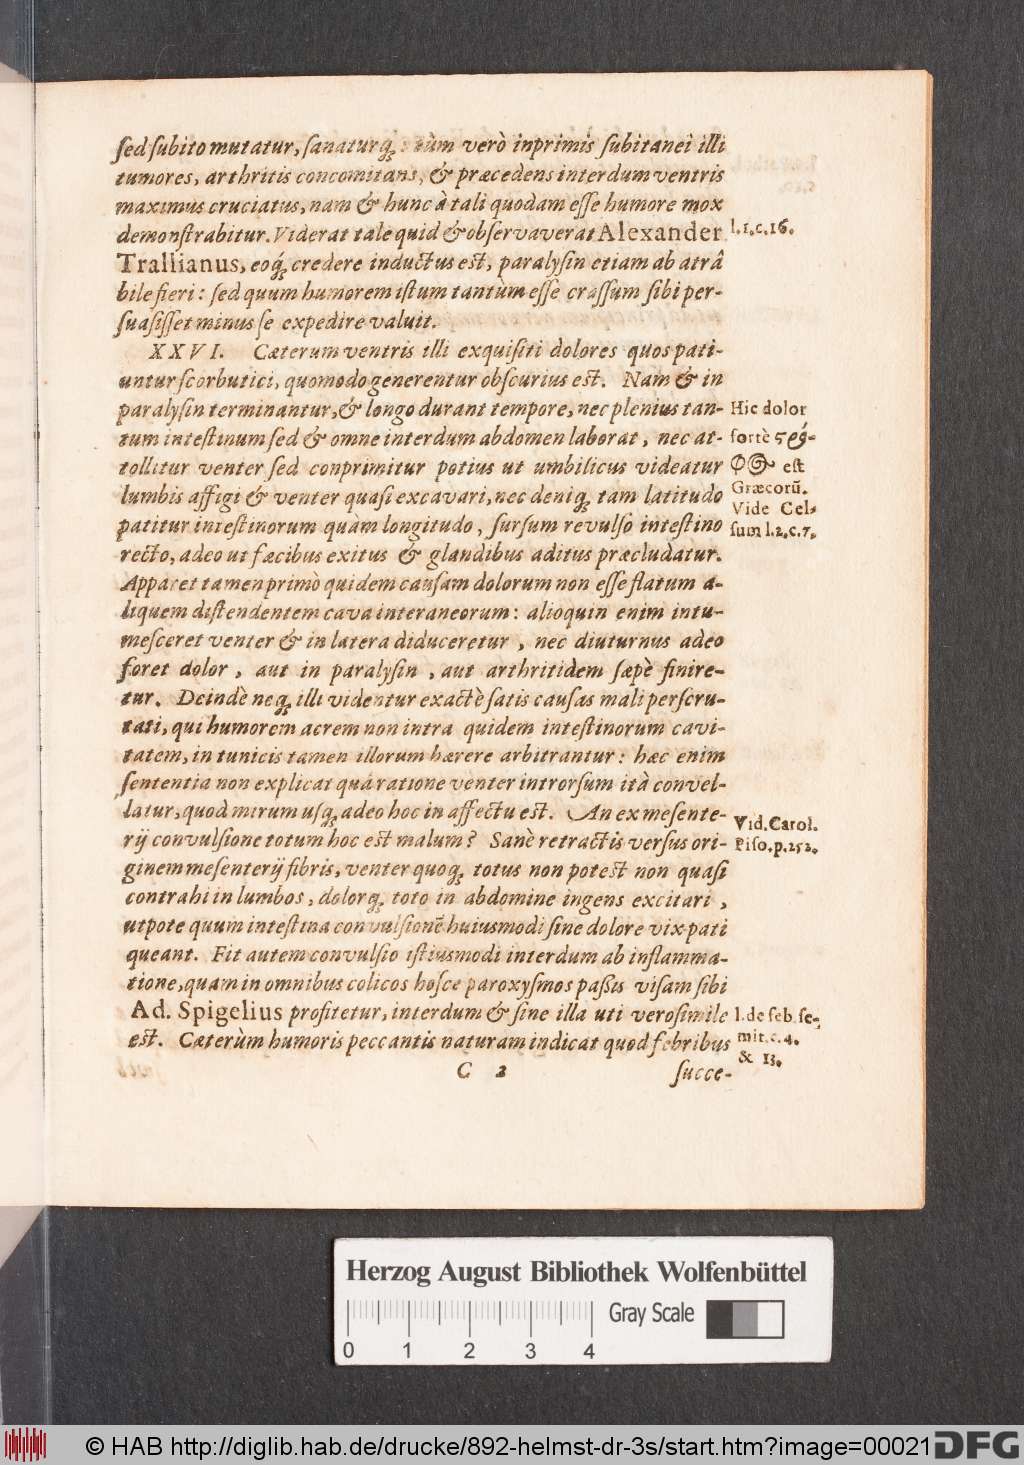 sed subito mutatur, sanaturq́; tùm verò inprimis subitanei illi
tumores, arthritis concomitans, & præcedens interdum ventris
maximus cruciatus, nam & hunc à tali quodam esse humore mox
demonstrabitur. Viderat tale quid & observaverat Alexander
l.1.c.16.
Trallianus, eoq́; credere inductus est, paralysin etiam ab atrâ
bile fieri: sed quum humorem istum tantùm esse crassum sibi per-
suasisset minus se expedire valuit.
XXVI. Cæterum ventris illi exquisiti dolores quos pati-
untur scorbutici, quomodo generentur obscurius est. Nam & in
paralysin terminantur, & longo durant tempore, nec plenius tan-
tum intestinum sed & omne interdum abdomen laborat, nec at-
tollitur venter sed conprimitur potius ut umbilicus videatur
lumbis affigi & venter quasi excavari, nec deniq; tam latitudo
patitur intestinorum quàm longitudo, sursum revulso intestino
recto, adeo ut fæcibus exitus & glandibus aditus præcludatur.
Hic dolor
fortè ςρό-
φ⊕ est
Græcorū.
Vide Cel-
sum l.2.c.7.
Apparet tamen primò quidem causam dolorum non esse flatum a-
liquem distendentem cava interaneorum: alioquin enim intu-
mesceret venter & in latera diduceretur, nec diuturnus adeo
foret dolor, aut in paralysin, aut arthritidem sæpè finire-
tur. Deindè neq; illi videntur exactè satis causas mali perscru-
tati, qui humorem acrem non intra quidem intestinorum cavi-
tatem, in tunicis tamen illorum hærere arbitrantur: hæc enim
sententia non explicat quâ ratione venter introrsum ità convel-
latur, quod mirum usq; adeo hoc in affectu est. An ex mesente-
rij convulsione totum hoc est malum? Sanè retractis versus ori-
Vid. Carol.
Piso. p.252.
ginem mesenterij fibris, venter quoq; totus non potest non quasi
contrahi in lumbos, dolorq; toto in abdomine ingens excitari,
utpote quum intestina convulsionē huiusmodi sine dolore vix pati
queant. Fit autem convulsio istiusmodi interdum ab inflamma-
tione, quam in omnibus colicos hosce paroxysmos passis visam sibi
Ad. Spigelius profitetur, interdum & sine illa uti verosimile
est. Cæterùm humoris peccantis naturam indicat quod febribus
l. de feb. se-
mit. c. 4.
& 13.
C 3
succe-
Herzog August Bibliothek Wolfenbüttel
Gray Scale
0 1 2 3 4
© HAB http://diglib.hab.de/drucke/892-helmst-dr-3s/start.htm?image=00021
DFG